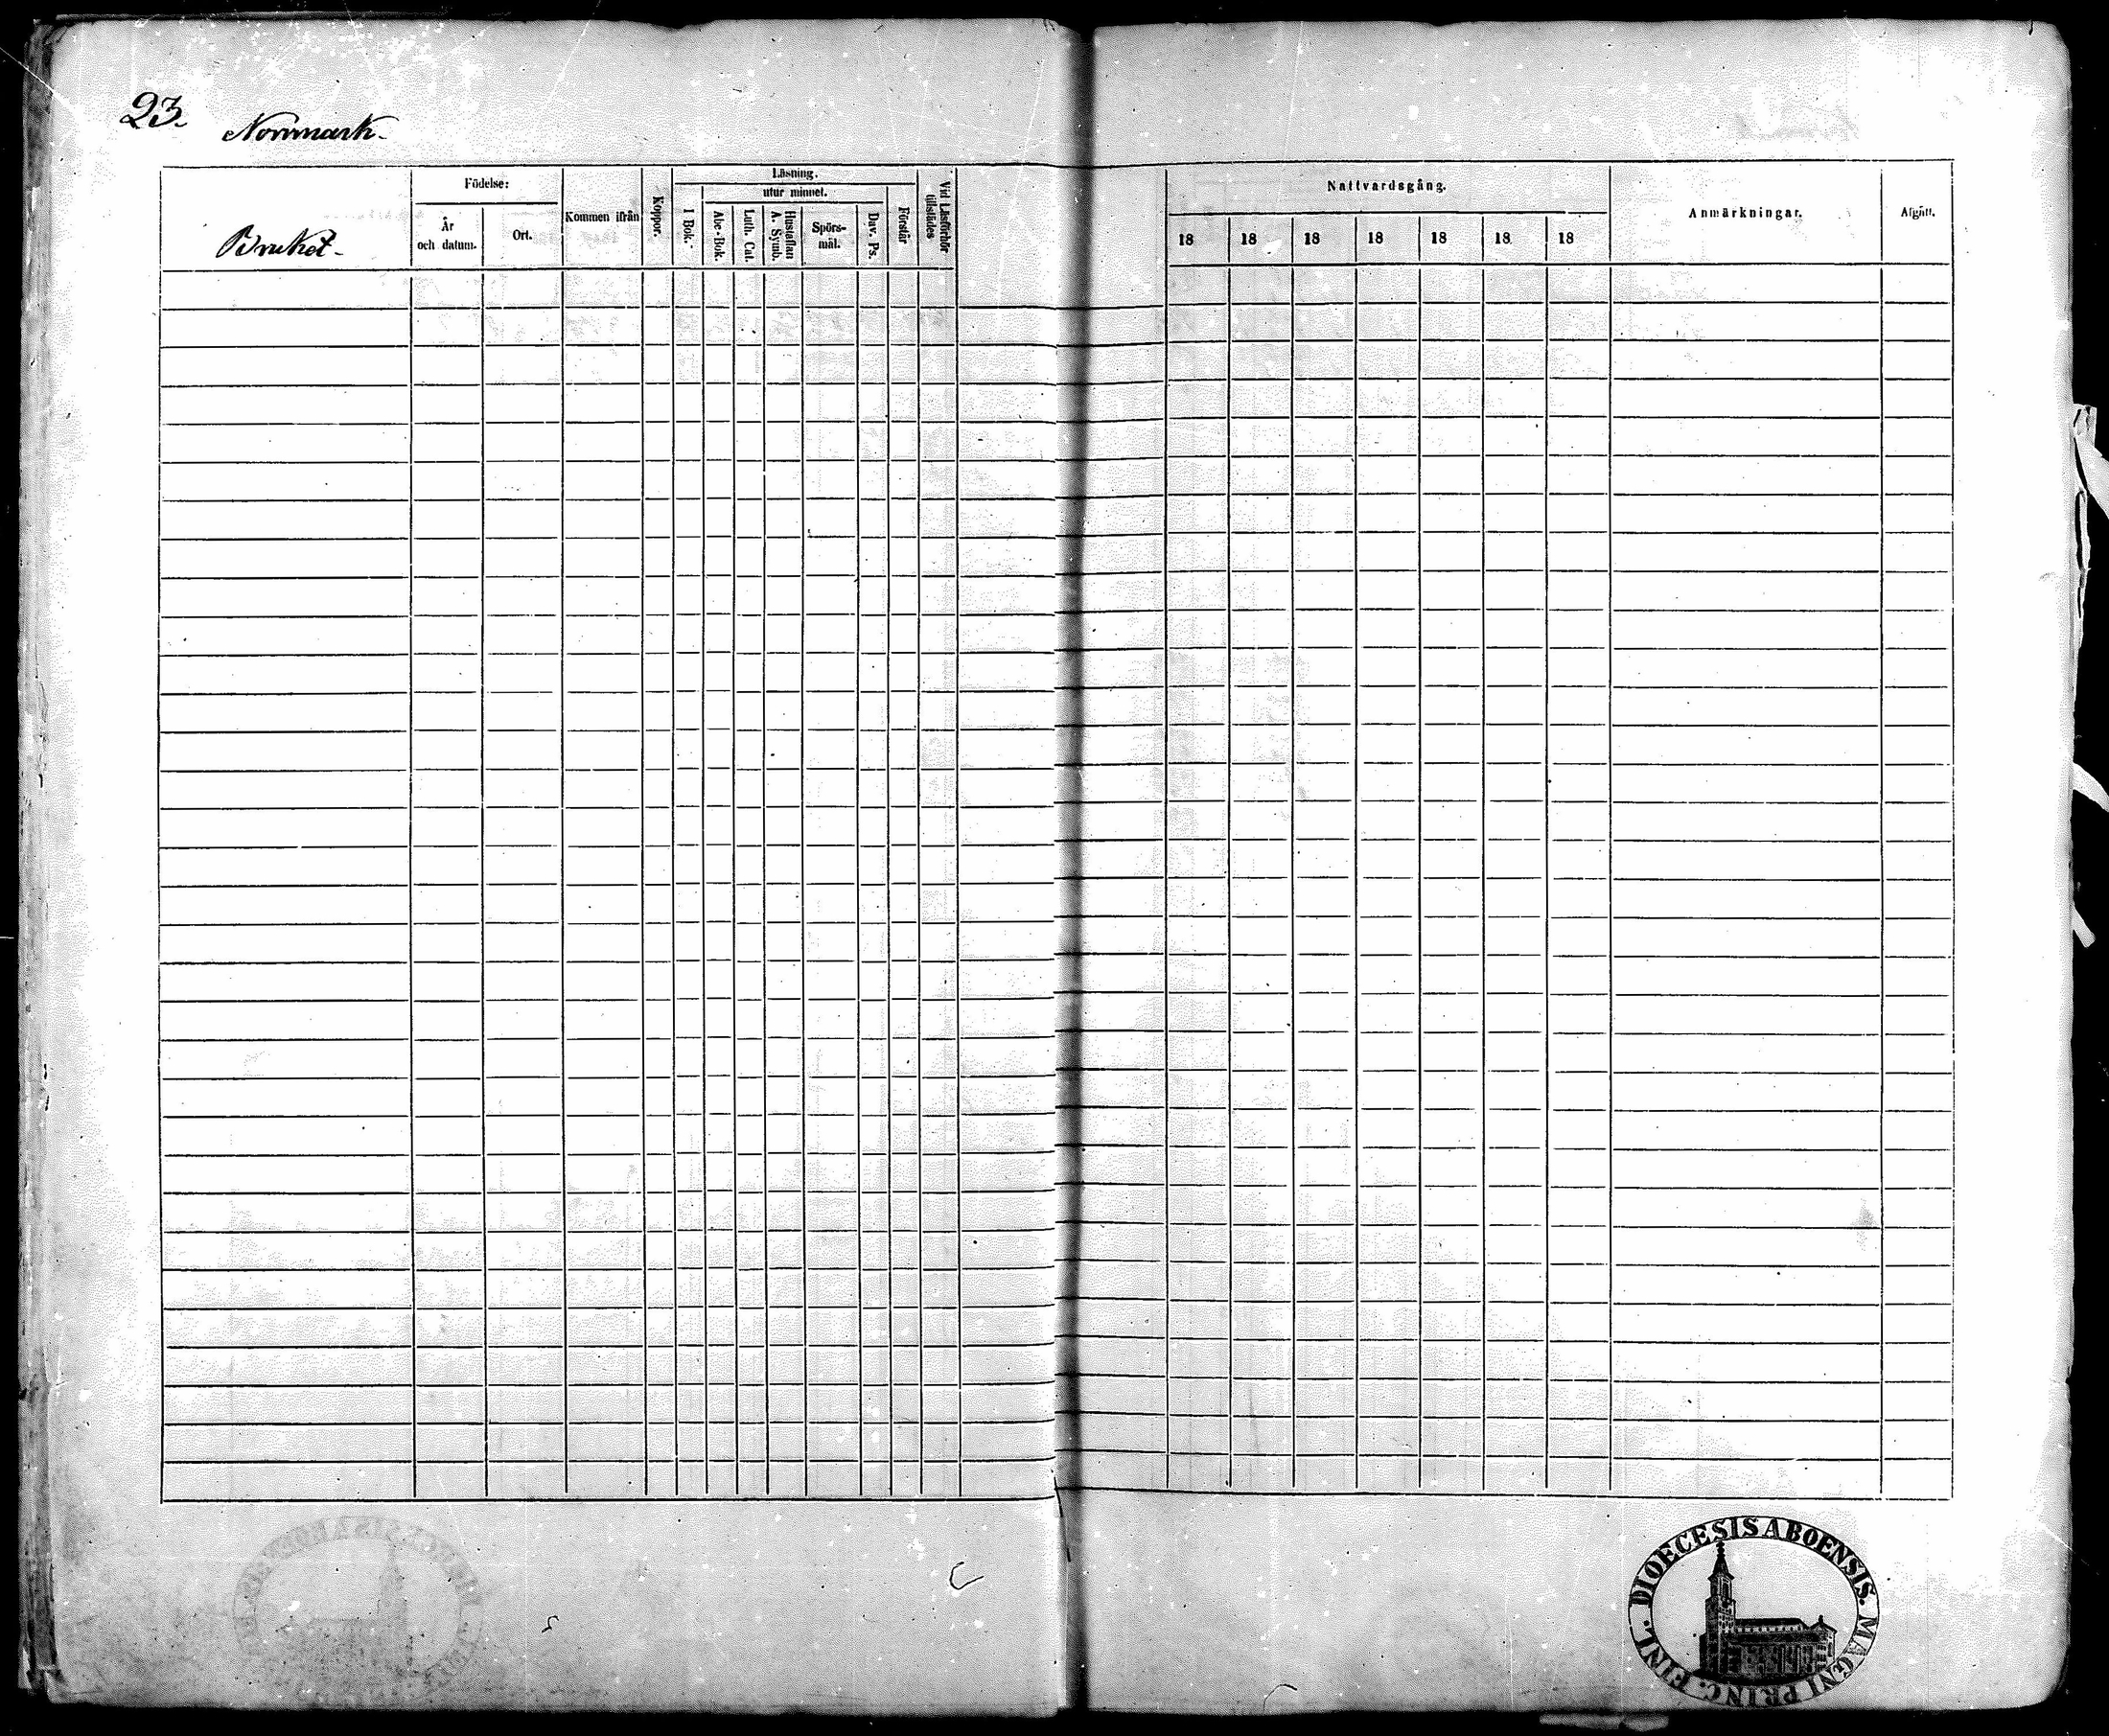 23.
Norrmark.
Bruket.
Födelse:
År
och datum.
Ort.
Kommen ifrån
Koppor.
Läsning.
utur minnet.
I Bok.
Abc-Bok.
Luth. Cat.
Hustaflan
A. Symb.
Spörs-
mål.
Dav. Ps.
Förstår
Vid Läsförhör
tillstädes
Nattvardsgång.
18 18 18 18 18 18 18
Anmärkningar.
Afgått.
DIOECESIS ABOENSIS. MAGNI PRINC. FINL.